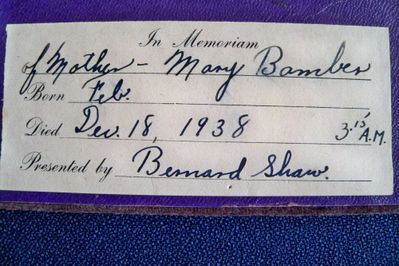 In Memoriam
of Mother – Mary Bamber
Born Feb.
Died Dec. 18, 1938 3:15 A.M.
Presented by Bernard Shaw.